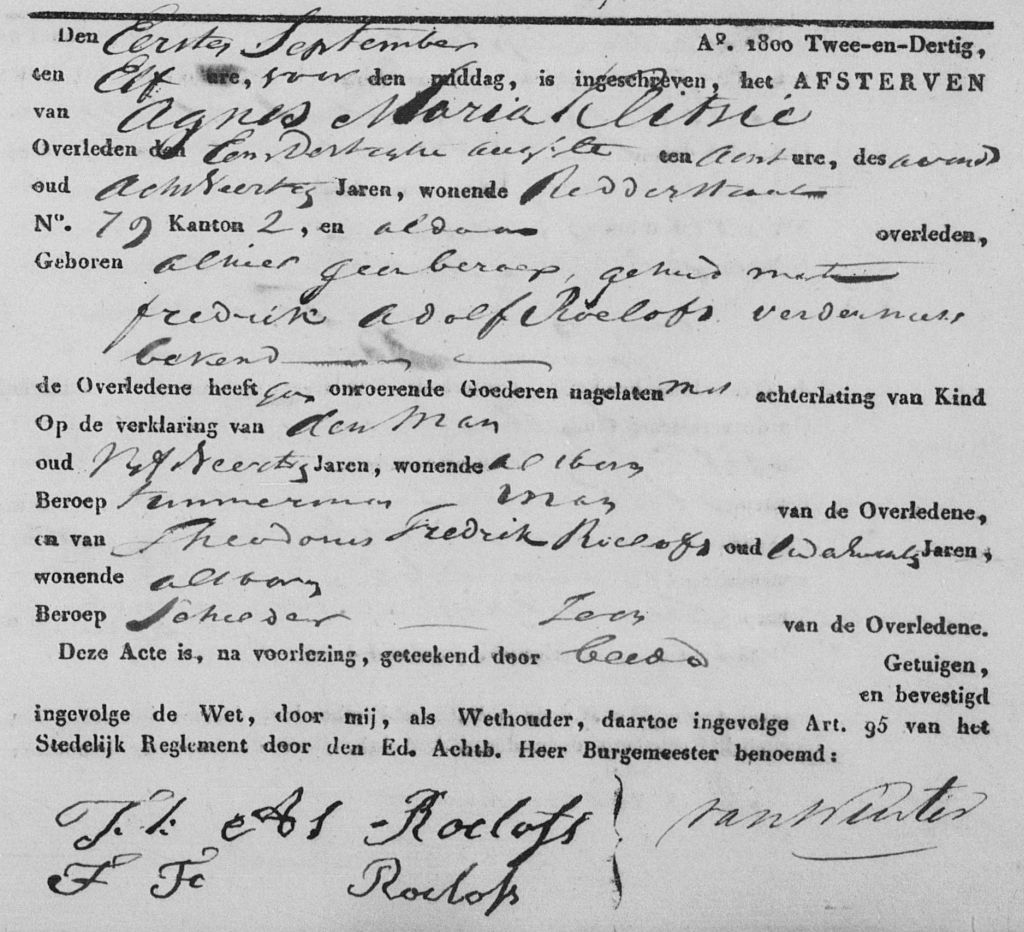 Den Eersten September A°. 1800 Twee-en-Dertig,
ten Elf ure, voor den middag, is ingeschreven, het AFSTERVEN
van Agnes Maria
Overleden den Eendertigste augustus ten acht ure, des avonds
oud achtveertig Jaren, wonende Ridderstraat
N°. 79 Kanton 2, en aldaar overleden,
Geboren alhier geen beroep, gehuwd met
fredrik Adolf Roelofs verder niets
bekend
de Overledene heeft geen onroerende Goederen nagelaten met achterlating van Kind
Op de verklaring van den Man
oud Vyfveertig Jaren, wonende
Beroep Timmerman Man van de Overledene,
en van Theodorus Fredrik Roelofs oud Jaren,
wonende
Beroep Zoon van de Overledene.
Deze Acte is, na voorlezing, geteekend door beede Getuigen,
en bevestigd
ingevolge de Wet, door mij, als Wethouder, daartoe ingevolge Art. 95 van het
Stedelijk Reglement door den Ed. Achtb. Heer Burgemeester benoemd:
Roelofs van Winter
Roelofs